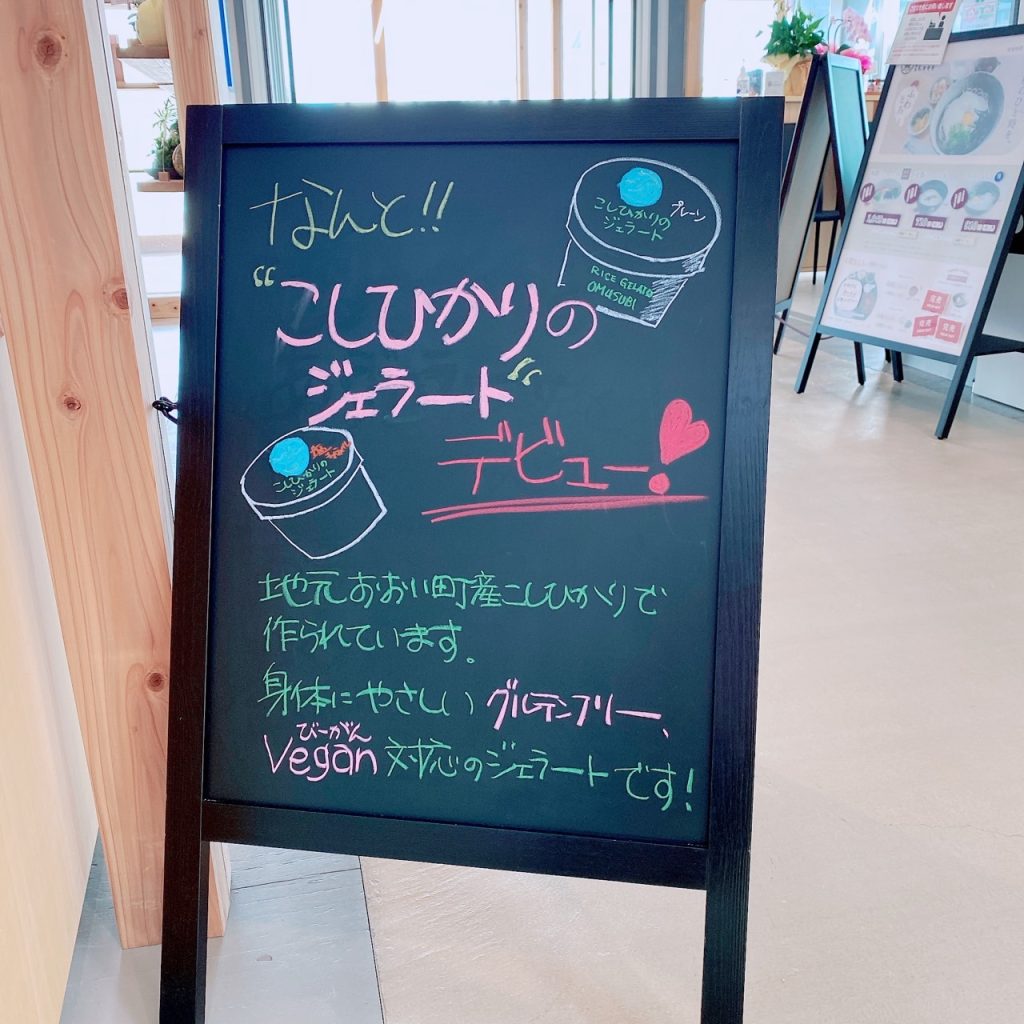 なんと!!
“こしひかりの
ジェラート”
デビュー!
こしひかりの
ジェラート
プレーン
RICE GELATO
OMUSUBI
こしひかりの
ジェラート
地元おおい町産こしひかりで
作られています。
身体にやさしいグルテンフリー、
びーがん
Vegan対応のジェラートです!
完売
完売
完売